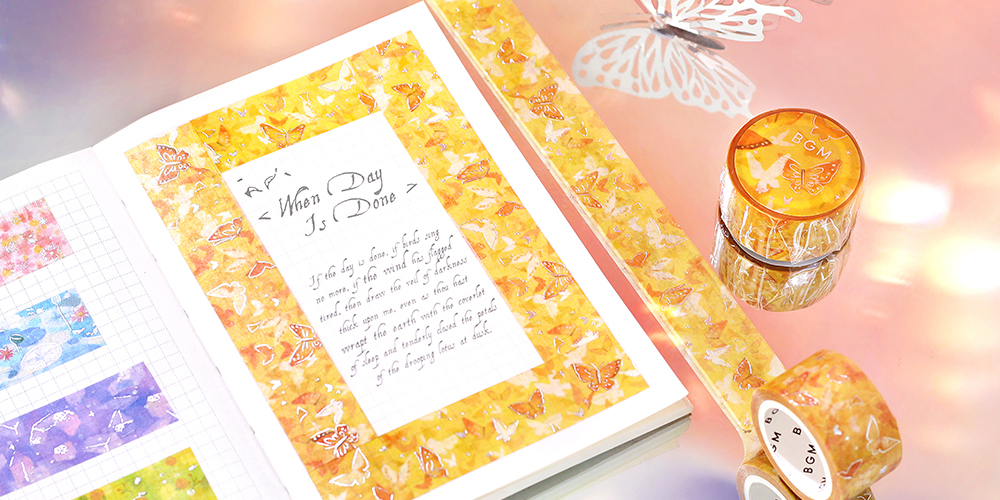 When Day
< Is Done >
If the day is done, if birds sing
no more, if the wind has flagged
tired, then draw the veil of darkness
thick upon me, even as thou hast
wrapt the earth with the coverlet
of sleep and tenderly closed the petals
of the drooping lotus at dusk.
BGM
BGM
BGM